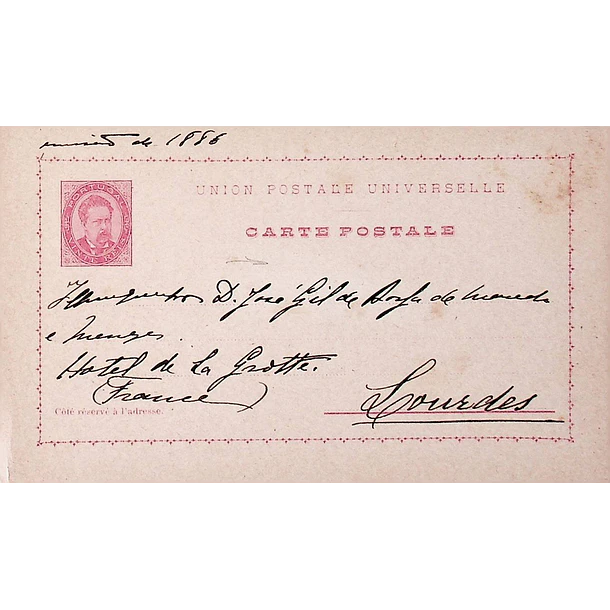 emissão de 1886
UNION POSTALE UNIVERSELLE
CARTE POSTALE
D. José Gil de Borja de Macedo
e Menezes
Hotel de La Grotte.
(France)
Lourdes
Côté réservé à l'adresse.